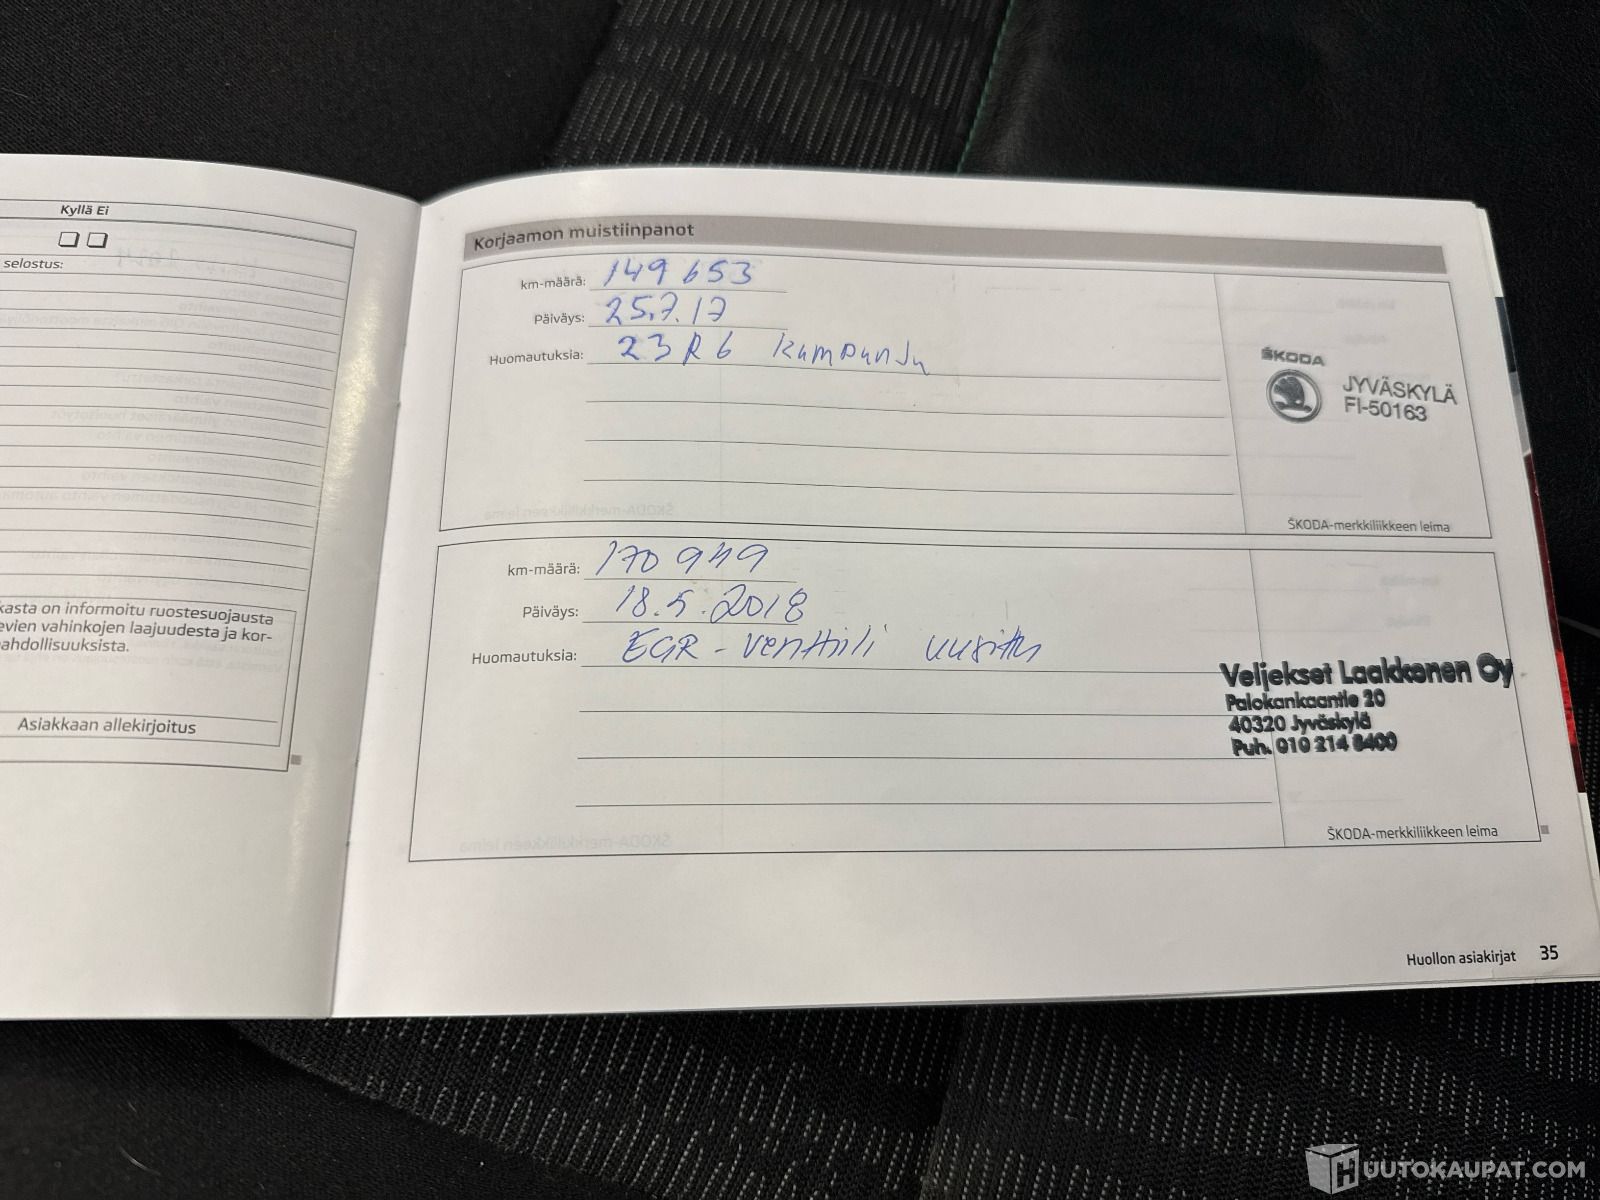 Kyllä Ei
selostus:
kasta on informoitu ruostesuojausta
evien vahinkojen laajuudesta ja kor-
ahdollisuuksista.
Asiakkaan allekirjoitus
Korjaamon muistiinpanot
km-määrä: 149 653
Päiväys: 25.7.17
Huomautuksia: 23R6 kampanja
ŠKODA
JYVÄSKYLÄ
FI-50163
ŠKODA-merkkiliikkeen leima
km-määrä: 170 949
Päiväys: 18.5.2018
Huomautuksia: EGR-venttiili uusittu
Veljekset Laakkonen Oy
Palokankaantie 20
40320 Jyväskylä
Puh. 010 214 8400
ŠKODA-merkkiliikkeen leima
Huollon asiakirjat 35
HUUTOKAUPAT.COM